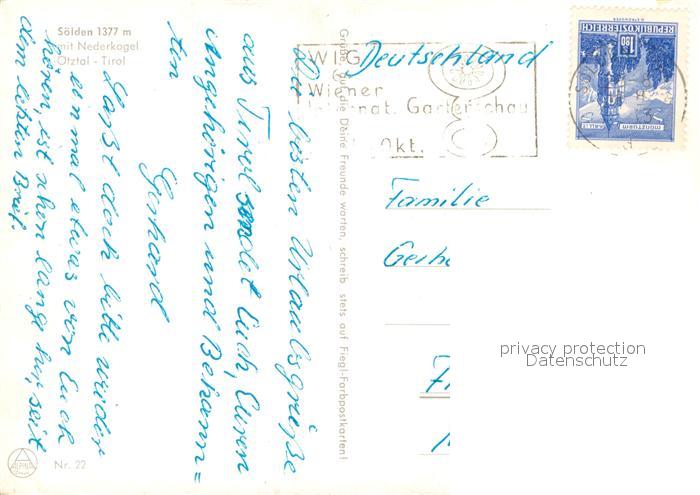 Sölden 1377 m
mit Nederkogel
Ötztal - Tirol
Die besten Urlaubsgrüße
aus Tirol sendet Euch, Euren
Angehörigen und Bekann=
ten
Gerhard
Laßt doch bitte wieder
einmal etwas von Euch
hören, ist schon lange her, seit
dem letzten Brief.
Nr. 22
ALPINA
Grüße, auf die Deine Freunde warten, schreib stets auf Fiegl-Farbpostkarten!
WIG
Wiener
Internat. Gartenschau
Okt.
REPUBLIK ÖSTERREICH
1.80
MÜNZTURM HALL I.T.
Deutschland
Familie
Gerh
privacy protection
Datenschutz